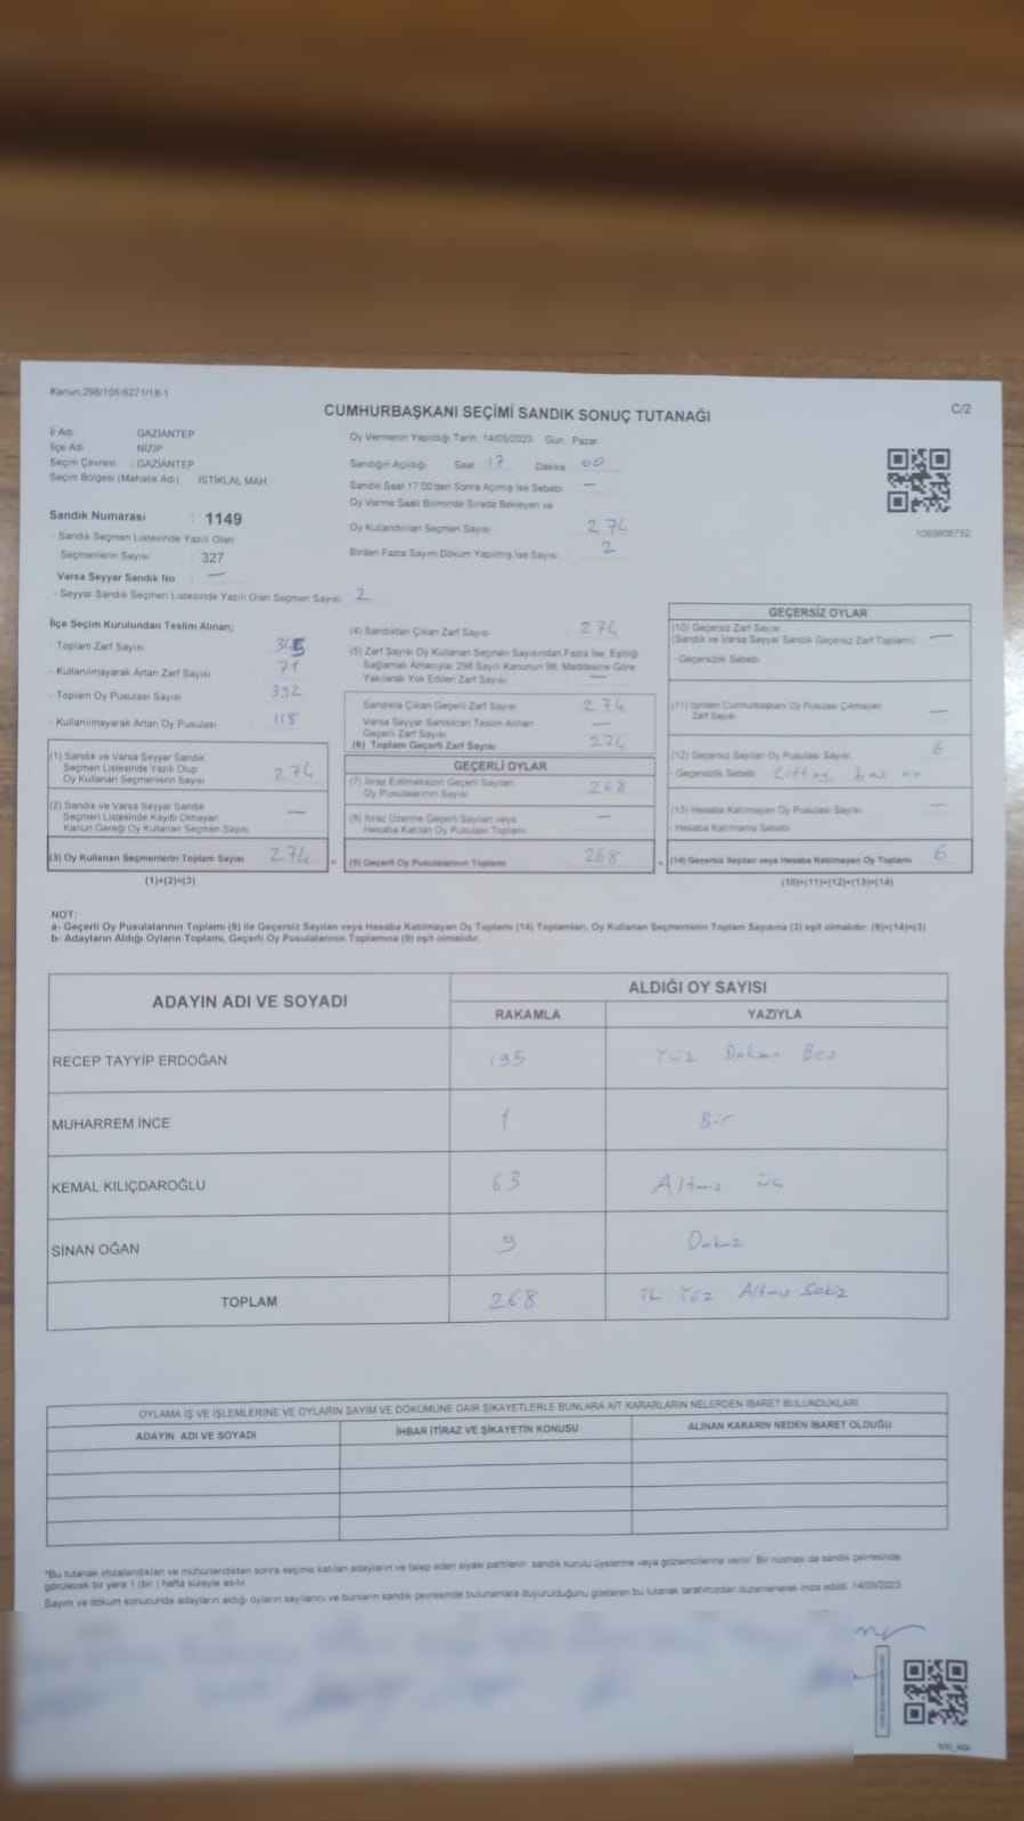 Kanun:298/105/6271/18-1
CUMHURBAŞKANI SEÇİMİ SANDIK SONUÇ TUTANAĞI
C/2
İl Adı GAZİANTEP
İlçe Adı NİZİP
Seçim Çevresi : GAZİANTEP
Seçim Bölgesi (Mahalle Adı) İSTİKLAL MAH.
Oy Vermenin Yapıldığı Tarih: 14/05/2023 Gün: Pazar
Sandığın Açıldığı Saat 17 Dakika 00
Sandık Saat 17:00'den Sonra Açılmış İse Sebebi —
Oy Verme Saati Bitiminde Sırada Bekleyen ve
Oy Kullandırılan Seçmen Sayısı 274
Birden Fazla Sayım Döküm Yapılmış İse Sayısı 2
Sandık Numarası : 1149
- Sandık Seçmen Listesinde Yazılı Olan
Seçmenlerin Sayısı 327
Varsa Seyyar Sandık No : —
- Seyyar Sandık Seçmen Listesinde Yazılı Olan Seçmen Sayısı 2
İlçe Seçim Kurulundan Teslim Alınan;
- Toplam Zarf Sayısı
- Kullanılmayarak Artan Zarf Sayısı 71
- Toplam Oy Pusulası Sayısı 392
- Kullanılmayarak Artan Oy Pusulası 118
(1) Sandık ve Varsa Seyyar Sandık
Seçmen Listesinde Yazılı Olup
Oy Kullanan Seçmenlerin Sayısı 274
(2) Sandık ve Varsa Seyyar Sandık
Seçmen Listesinde Kayıtlı Olmayan
Kanun Gereği Oy Kullanan Seçmen Sayısı —
(3) Oy Kullanan Seçmenlerin Toplam Sayısı 274
(1)+(2)=(3)
(4) Sandıktan Çıkan Zarf Sayısı 274
(5) Zarf Sayısı Oy Kullanan Seçmen Sayısından Fazla İse, Eşitliği
Sağlamak Amacıyla 298 Sayılı Kanunun 98. Maddesine Göre
Yakılarak Yok Edilen Zarf Sayısı —
Sandıkta Çıkan Geçerli Zarf Sayısı 274
Varsa Seyyar Sandıktan Teslim Alınan
Geçerli Zarf Sayısı —
(6) Toplam Geçerli Zarf Sayısı 274
GEÇERLİ OYLAR
(7) İtiraz Edilmeksizin Geçerli Sayılan
Oy Pusulalarının Sayısı 268
(8) İtiraz Üzerine Geçerli Sayılan veya
Hesaba Katılan Oy Pusulası Toplamı —
(9) Geçerli Oy Pusulalarının Toplamı 268
GEÇERSİZ OYLAR
(10) Geçersiz Zarf Sayısı
(Sandık ve Varsa Seyyar Sandık Geçersiz Zarf Toplamı) —
- Geçersizlik Sebebi
(11) İçinden Cumhurbaşkanı Oy Pusulası Çıkmayan
Zarf Sayısı —
(12) Geçersiz Sayılan Oy Pusulası Sayısı 6
- Geçersizlik Sebebi
(13) Hesaba Katılmayan Oy Pusulası Sayısı —
- Hesaba Katılmama Sebebi
(14) Geçersiz Sayılan veya Hesaba Katılmayan Oy Toplamı 6
(10)+(11)+(12)+(13)=(14)
NOT:
a- Geçerli Oy Pusulalarının Toplamı (9) ile Geçersiz Sayılan veya Hesaba Katılmayan Oy Toplamı (14) Toplamları, Oy Kullanan Seçmenlerin Toplam Sayısına (3) eşit olmalıdır. (9)+(14)=(3)
b- Adayların Aldığı Oyların Toplamı, Geçerli Oy Pusulalarının Toplamına (9) eşit olmalıdır.
ADAYIN ADI VE SOYADI
ALDIĞI OY SAYISI
RAKAMLA YAZIYLA
RECEP TAYYİP ERDOĞAN 195 Yüz Doksan Beş
MUHARREM İNCE 1 Bir
KEMAL KILIÇDAROĞLU 63 Altmış üç
SİNAN OĞAN 9 Dokuz
TOPLAM 268 İki Yüz Altmış Sekiz
OYLAMA İŞ VE İŞLEMLERİNE VE OYLARIN SAYIM VE DÖKÜMÜNE DAİR ŞİKAYETLERLE BUNLARA AİT KARARLARIN NELERDEN İBARET BULUNDUKLARI
ADAYIN ADI VE SOYADI İHBAR İTİRAZ VE ŞİKAYETİN KONUSU ALINAN KARARIN NEDEN İBARET OLDUĞU
*Bu tutanak imzalandıktan ve mühürlendikten sonra seçime katılan adayların ve talep eden siyasi partilerin sandık kurulu üyelerine veya gözlemcilerine verilir. Bir nüshası da sandık çevresinde
görülecek bir yere 1 (bir) hafta süreyle asılır.
Sayım ve döküm sonucunda adayların aldığı oyların sayılarını ve bunların sandık çevresinde bulunanlara duyurulduğunu gösteren bu tutanak tarafımızdan düzenlenerek imza edildi. 14/05/2023